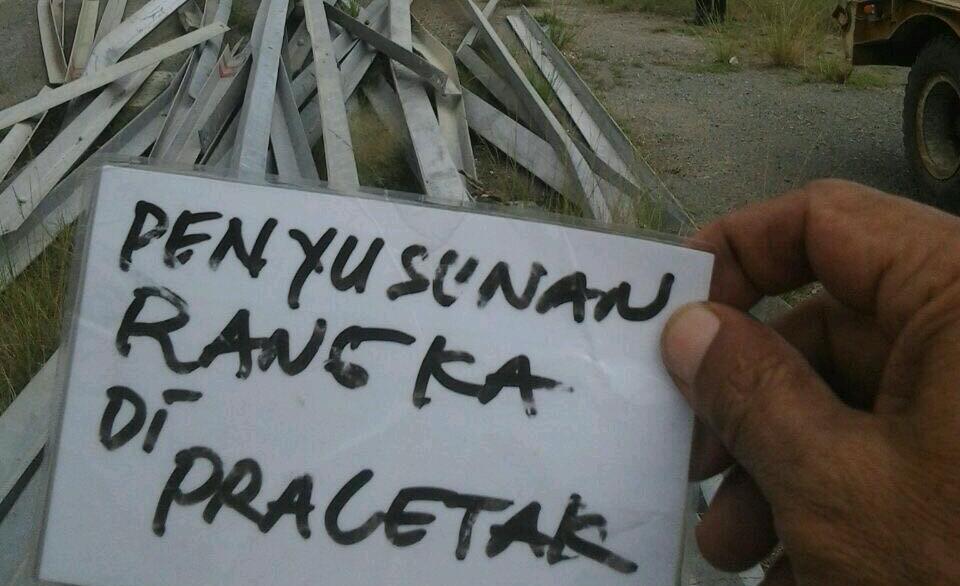 PENYUSUNAN
RANGKA
DI
PRACETAK